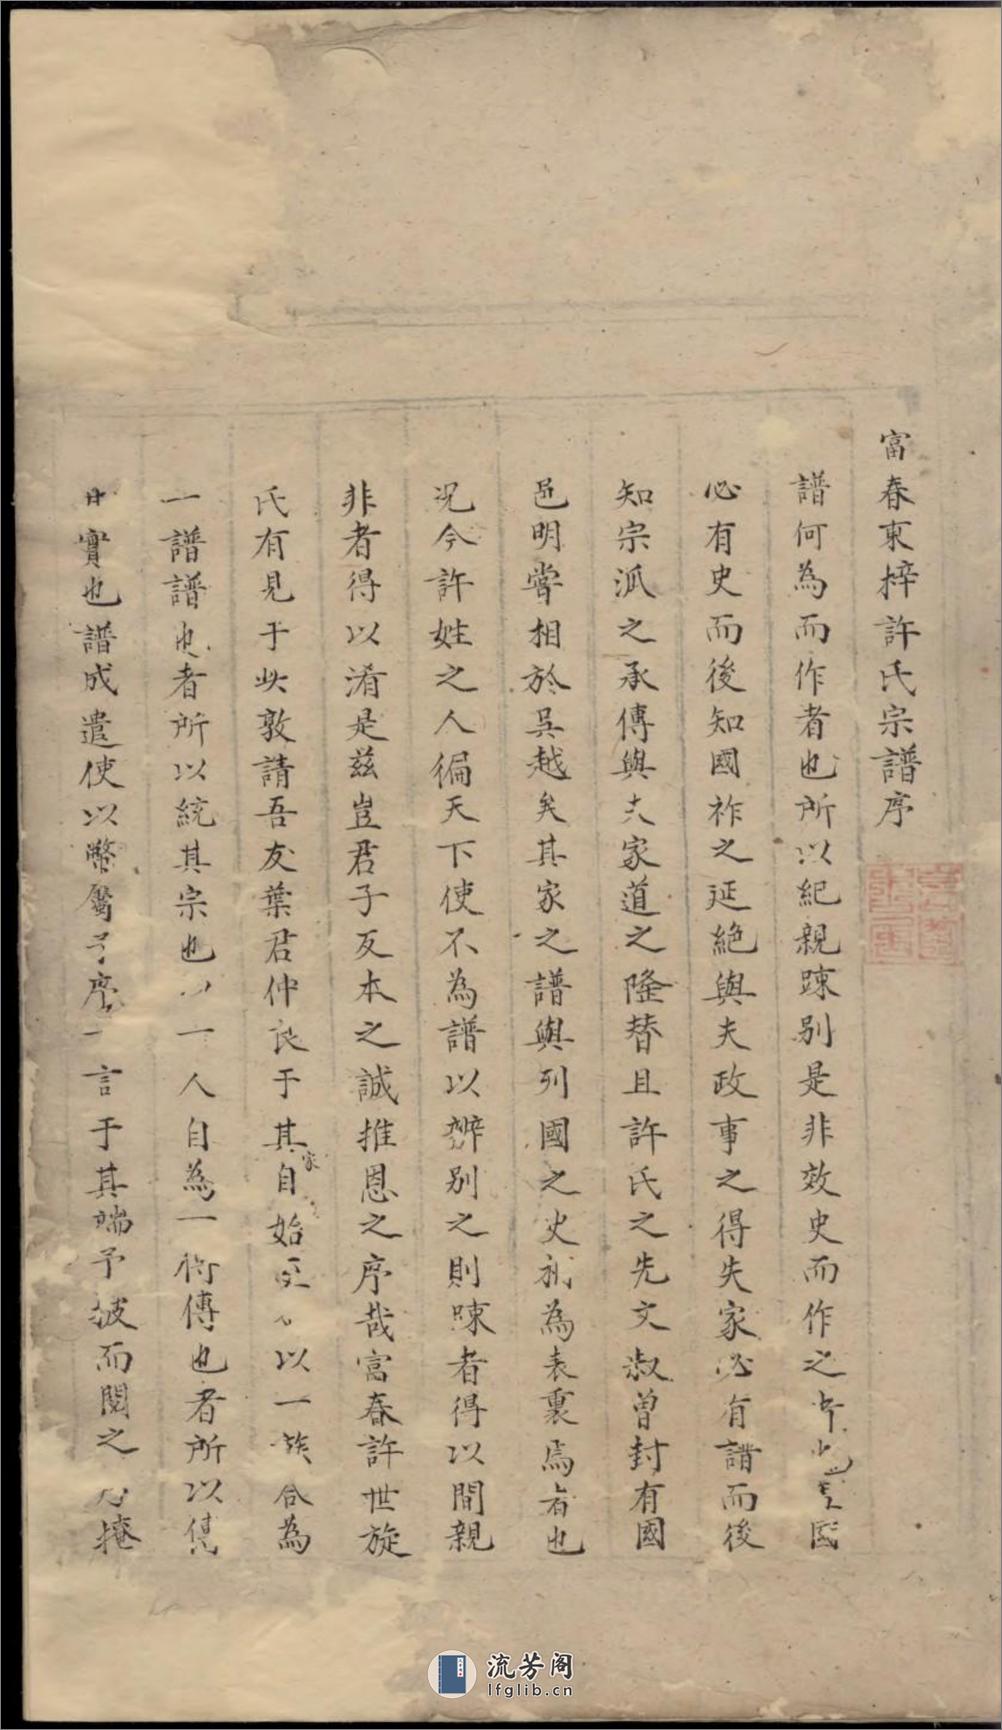 富春東梓許氏宗譜序
譜何為而作者也所以紀親踈别是非效史而作之國
必有史而後知國祚之延絶與夫政事之得失家必有譜而後
知宗派之承傳與夫家道之隆替且許氏之先文叔曾封有國
邑明嘗相於吳越矣其家之譜與列國之史視為表裏焉者也
况今許姓之人徧天下使不為譜以辨别之則踈者得以間親
非者得以淆是兹豈君子反本之誠推恩之序哉富春許世旋
氏有見于此敦請吾友葉君仲良于其家自始以一族合為
一譜譜也者所以統其宗也以一人自為一傳也者所以傳
實也譜成遣使以幣屬予序一言于其端予披而閲之掩
流芳阁
lfglib.cn